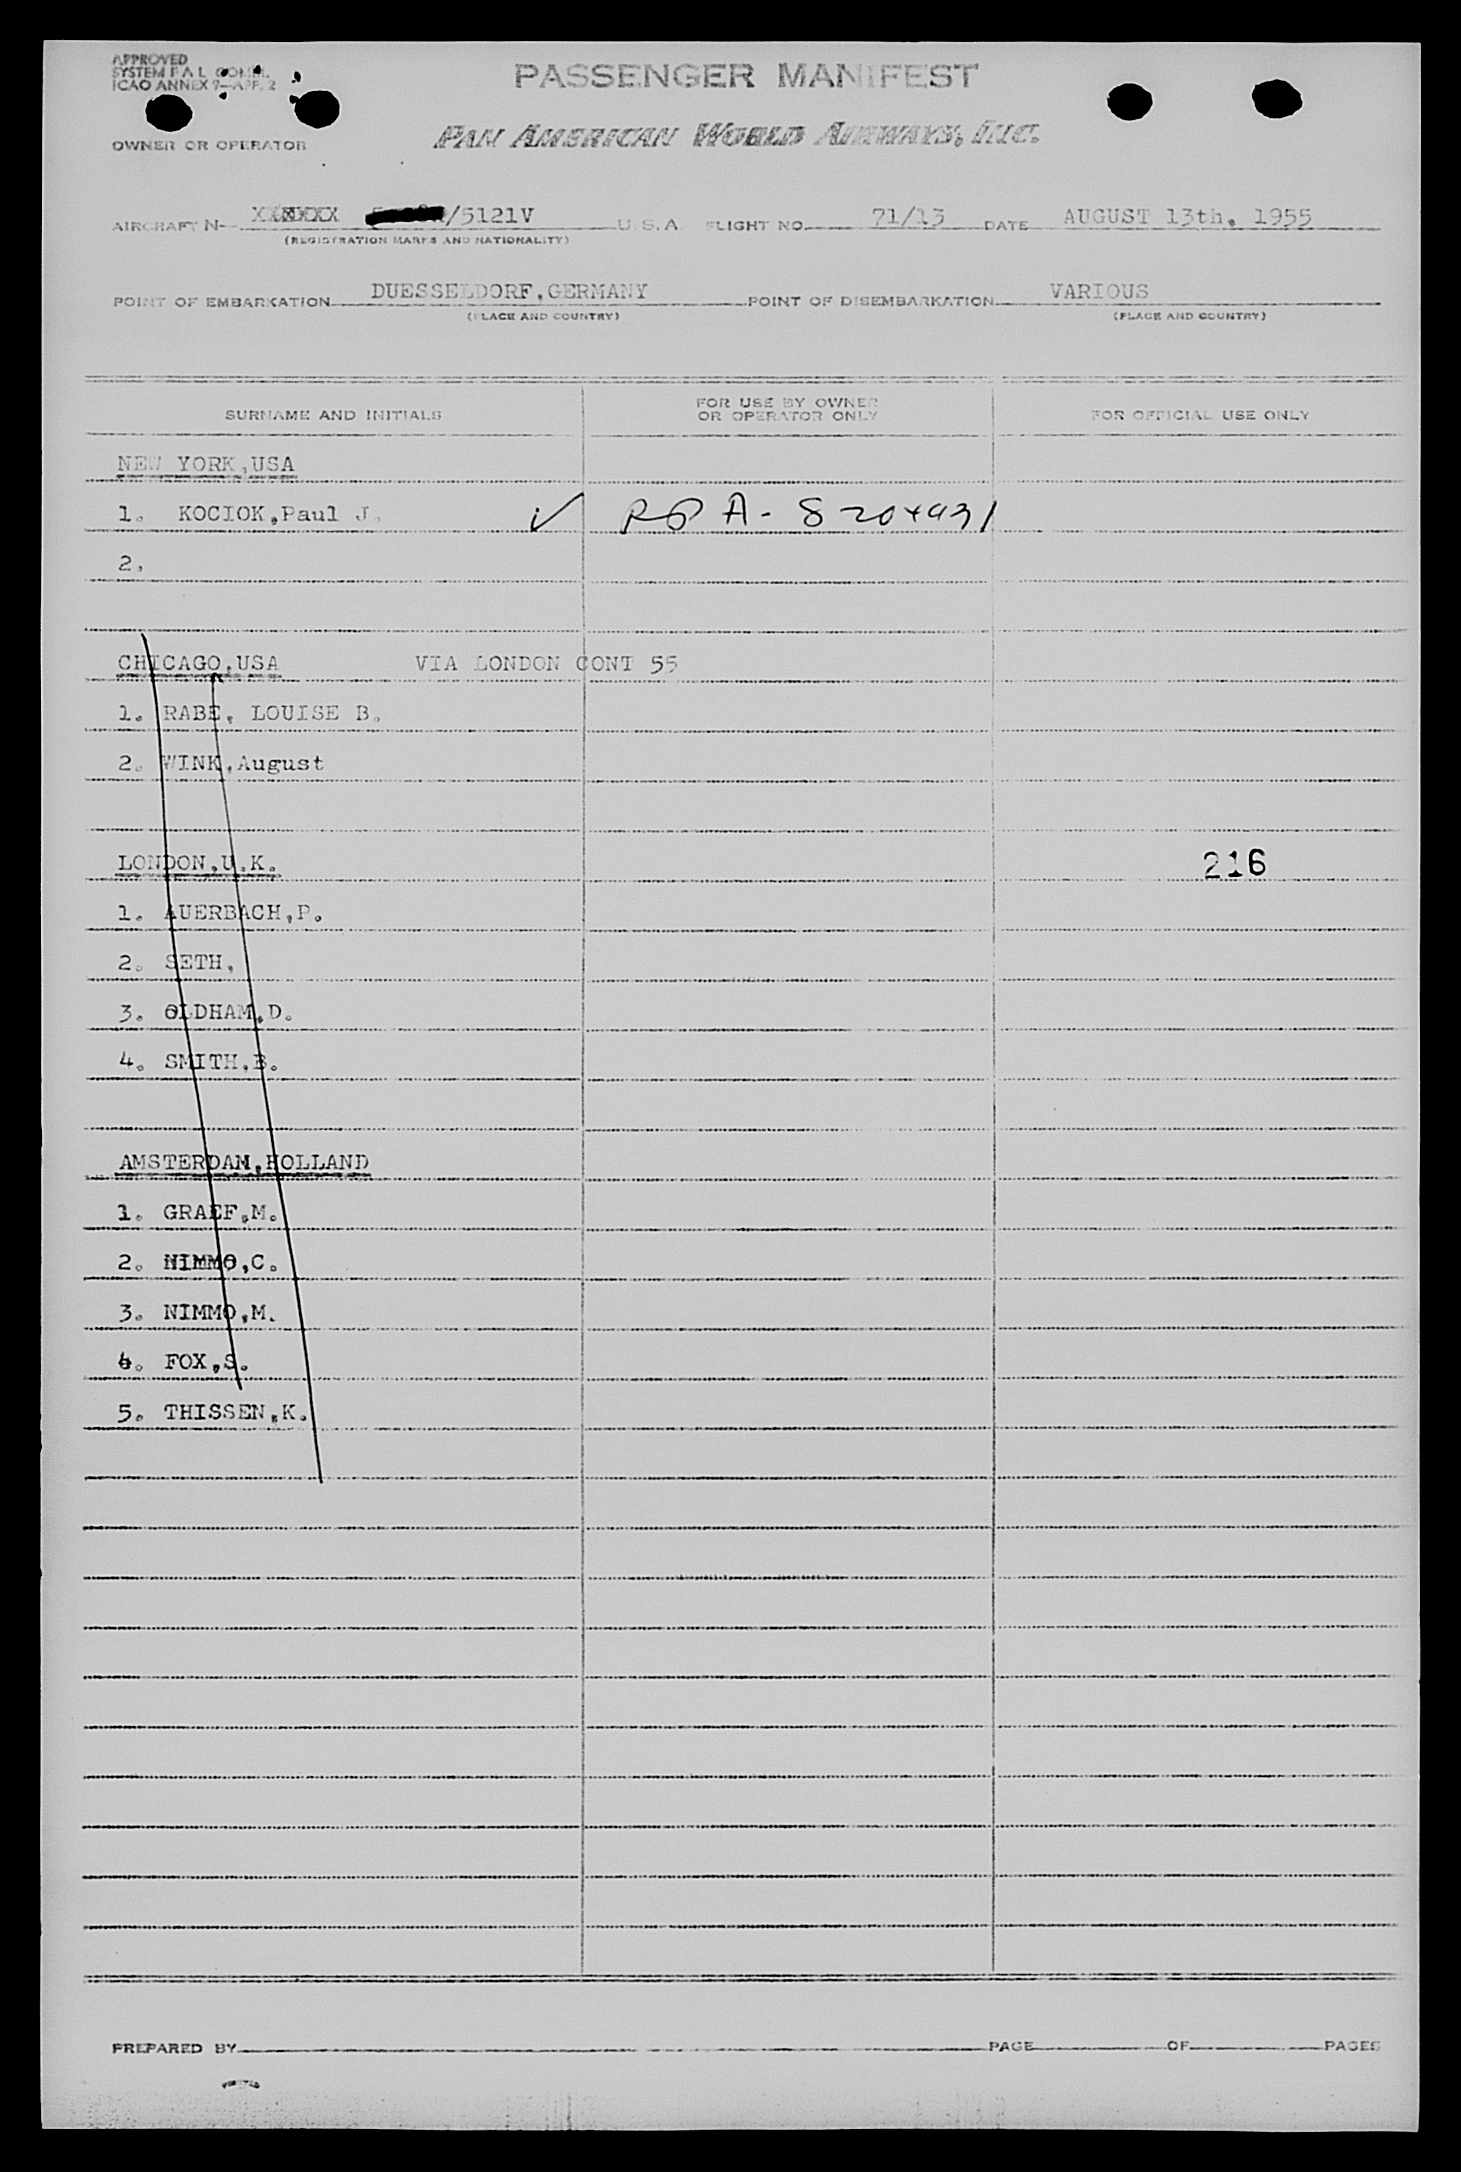 APPROVED
SYSTEM F A L COMM.
ICAO ANNEX 9-APP. 2
PASSENGER MANIFEST
OWNER OR OPERATOR
PAN AMERICAN WORLD AIRWAYS, INC.
AIRCRAFT N- /5121V U. S. A. FLIGHT NO. 71/13 DATE AUGUST 13th, 1955
(REGISTRATION MARKS AND NATIONALITY)
POINT OF EMBARKATION DUESSELDORF,GERMANY POINT OF DISEMBARKATION VARIOUS
(PLACE AND COUNTRY) (PLACE AND COUNTRY)
SURNAME AND INITIALS FOR USE BY OWNER OR OPERATOR ONLY FOR OFFICIAL USE ONLY
NEW YORK,USA
1. KOCIOK,Paul J. ✓ A-8204931
2.
CHICAGO,USA VIA LONDON CONT 55
1. RABE, LOUISE B.
2. WINK,August
LONDON,U.K. 216
1. AUERBACH,P.
2. SETH,
3. OLDHAM,D.
4. SMITH,B.
AMSTERDAM,HOLLAND
1. GRAEF,M.
2. NIMMO,C.
3. NIMMO,M.
4. FOX,S.
5. THISSEN,K.
PREPARED BY PAGE OF PAGES